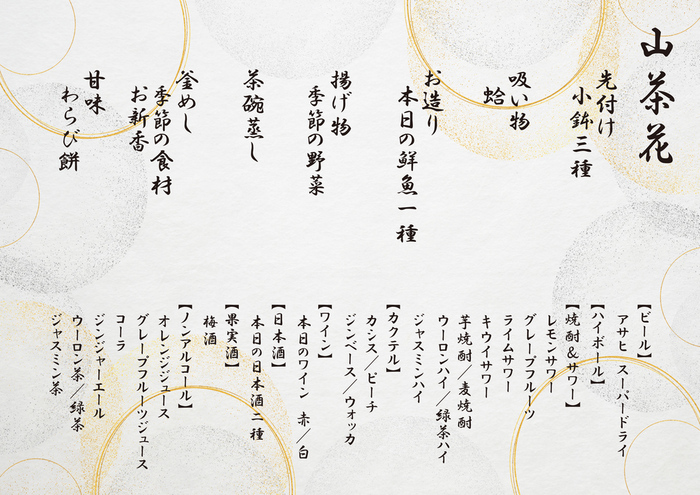 山茶花
先付け
小鉢三種
吸い物
蛤
お造り
本日の鮮魚一種
揚げ物
季節の野菜
茶碗蒸し
釜めし
季節の食材
お新香
甘味
わらび餅
【ビール】
アサヒ スーパードライ
【ハイボール】
【焼酎＆サワー】
レモンサワー
グレープフルーツ
ライムサワー
キウイサワー
芋焼酎／麦焼酎
ウーロンハイ／緑茶ハイ
ジャスミンハイ
【カクテル】
カシス／ピーチ
ジンベース／ウォッカ
【ワイン】
本日のワイン 赤／白
【日本酒】
本日の日本酒二種
【果実酒】
梅酒
【ノンアルコール】
オレンジジュース
グレープフルーツジュース
コーラ
ジンジャーエール
ウーロン茶／緑茶
ジャスミン茶